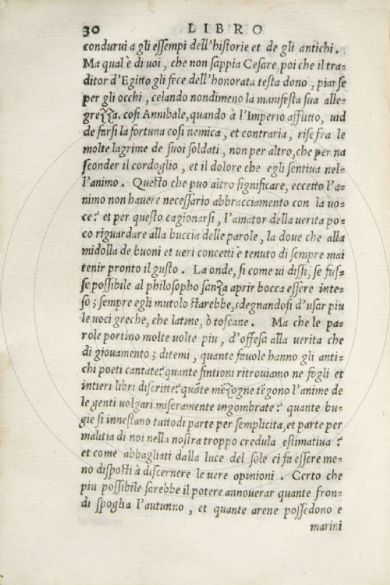 30 LIBRO
condurui a gli essempi dell'historie et de gli antichi.
Ma qual è di uoi, che non sappia Cesare, poi che il tra=
ditor d'Egitto gli fece dell'honorata testa dono, piarse
per gli occhi, celando nondimeno la manifesta sua alle=
grezza. cosi Annibale, quando à l'Imperio afflitto, uid
de farsi la fortuna cosi nemica, et contraria, rise fra le
molte lagrime de suoi soldati, non per altro, che per na
sconder il cordoglio, et il dolore che egli sentiua nel=
l'animo. Questo che puo altro significare, eccetto l'a=
nimo non hauere necessario abbracciamento con la uo=
ce? et per questo cagionarsi, l'amator della uerita po=
co riguardare alla buccia delle parole, la doue che alla
midolla de buoni et ueri concetti e tenuto di sempre mai
tenir pronto il gusto. La onde, si come ui dissi, se fus=
se possibile al philosopho sanza aprir bocca essere inte=
so; sempre egli mutolo starebbe, sdegnandosi d'usar piu
le uoci greche, che latine, ò toscane. Ma che le pa=
role portino molte uolte piu, d'offesa alla uerita che
di giouamento; ditemi, quante fauole hanno gli anti=
chi poeti cantate? quante fintioni ritrouiamo ne fogli et
intieri libri discritte? quāte mēzogne tēgono l'anime de
le genti uolgari miseramente ingombrate? quante bu=
gie si innestano tuttodi parte per semplicita, et parte per
malitia di noi nella nostra troppo credula estimatiua?
et come abbagliati dalla luce del sole ci fa essere me=
no disposti à discernere le uere opinioni. Certo che
piu possibile sarebbe il potere annouerar quante fron=
di spoglia l'autunno, et quante arene possedono e
marini